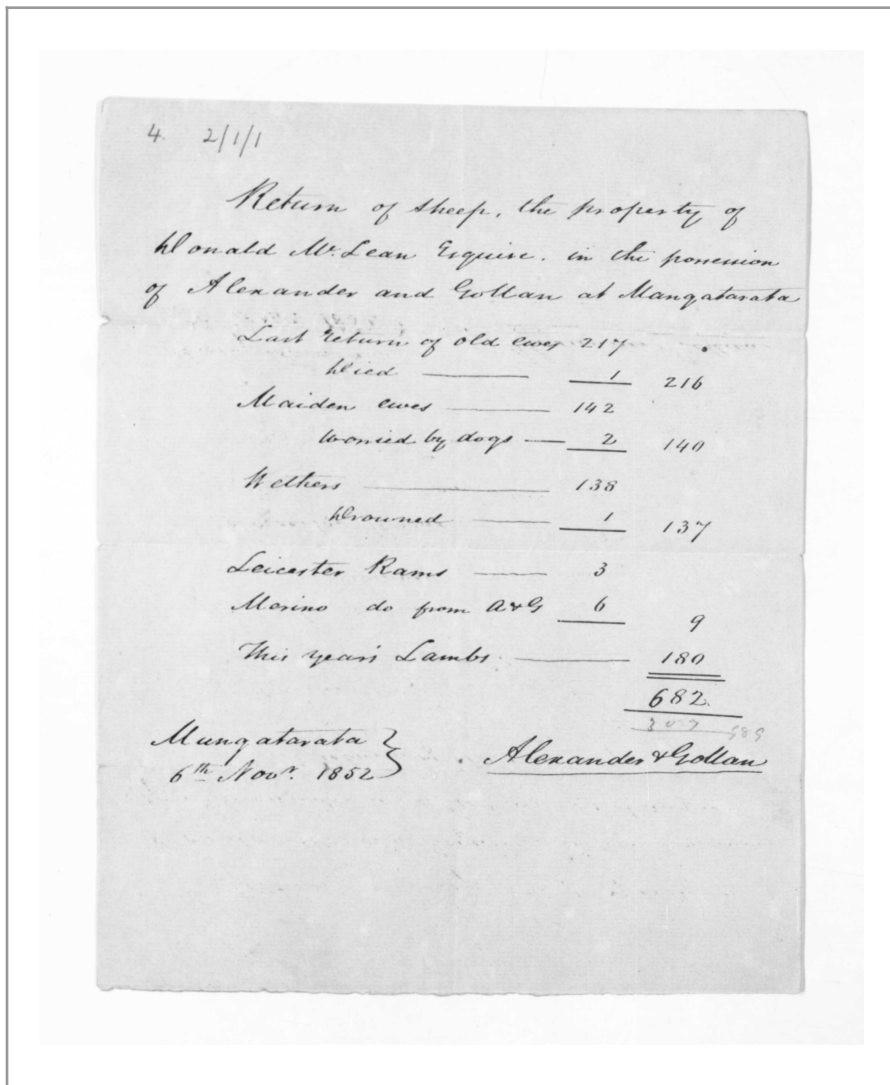 4. 2/1/1
Return of sheep, the property of
Donald McLean Esquire. in the possession
of Alexander and Gollan at Mangatarata
Last return of old ewes 217
Died 1 216
Maiden ewes 142
worried by dogs 2 140
Wethers 138
Drowned 1 137
Leicester Rams 3
Merino do from A&G 6 9
This year's Lambs. 180
682.
Mungatarata
6th Novr. 1852
Alexander & Gollan